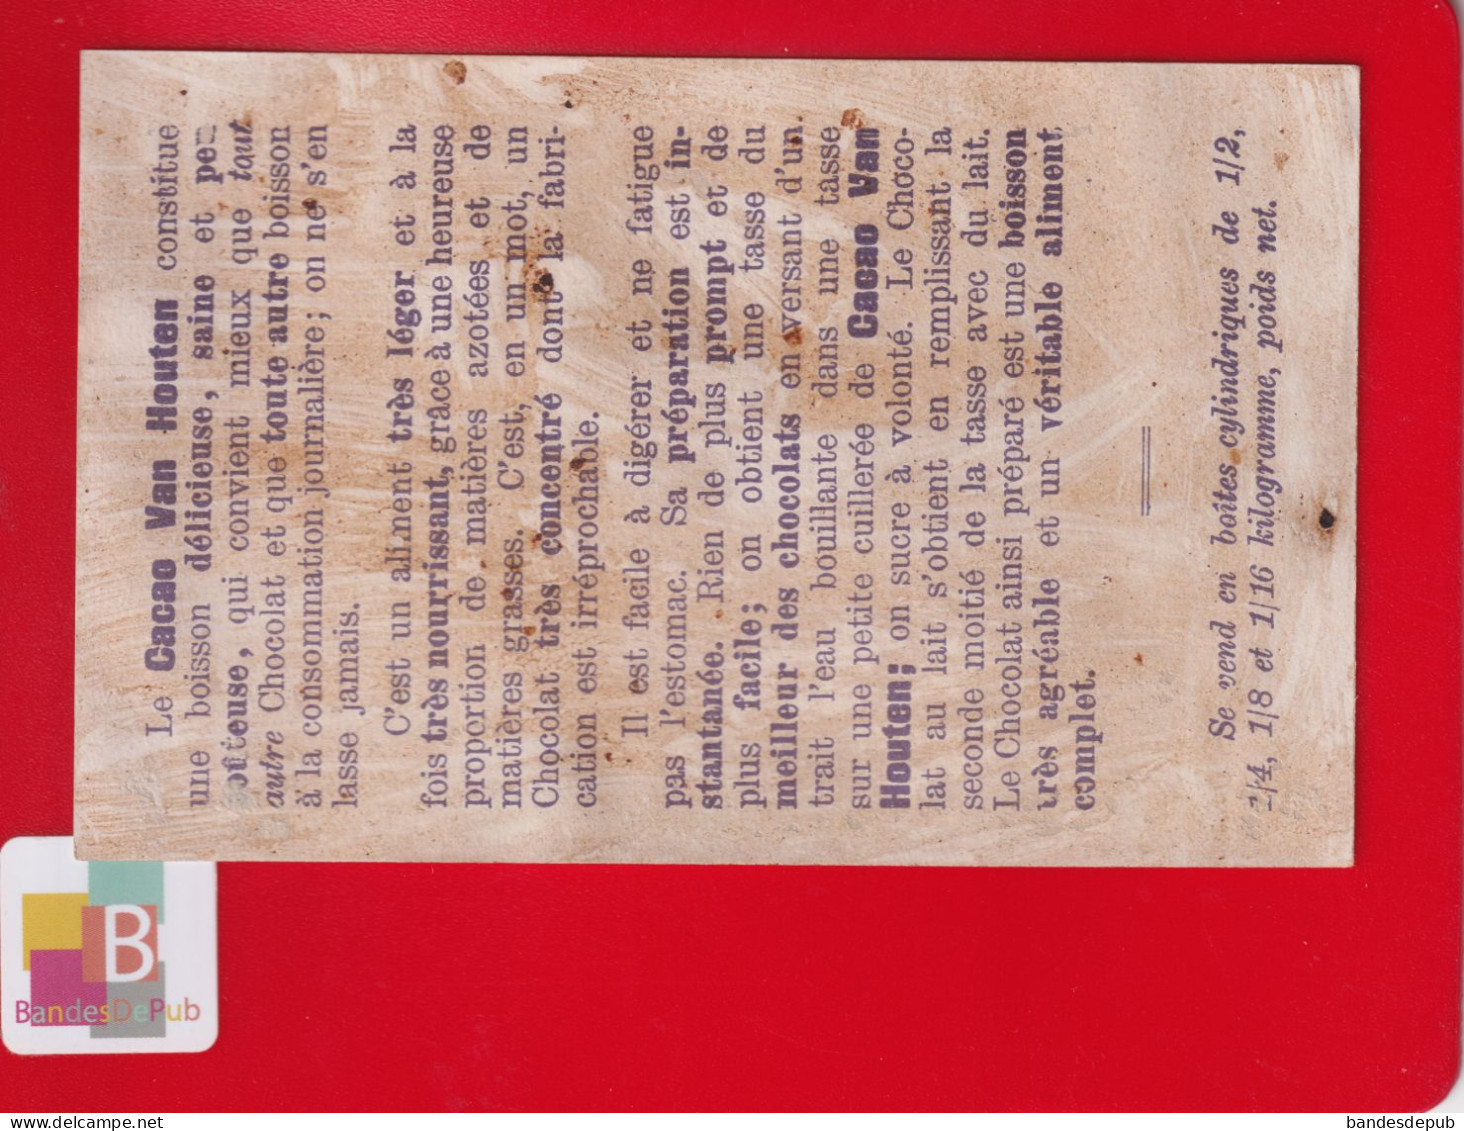 Le Cacao Van Houten constitue
une boisson délicieuse, saine et peu
coûteuse, qui convient mieux que tout
autre Chocolat et que toute autre boisson
à la consommation journalière; on ne s'en
lasse jamais.
C'est un aliment très léger et à la
fois très nourrissant, grâce à une heureuse
proportion de matières azotées et de
matières grasses. C'est, en un mot, un
Chocolat très concentré dont la fabri-
cation est irréprochable.
Il est facile à digérer et ne fatigue
pas l'estomac. Sa préparation est in-
stantanée. Rien de plus prompt et de
plus facile; on obtient une tasse du
meilleur des chocolats en versant d'un
trait l'eau bouillante dans une tasse
sur une petite cuillerée de Cacao Van
Houten; on sucre à volonté. Le Choco-
lat au lait s'obtient en remplissant la
seconde moitié de la tasse avec du lait.
Le Chocolat ainsi préparé est une boisson
très agréable et un véritable aliment
complet.
Se vend en boîtes cylindriques de 1/2,
1/4, 1/8 et 1/16 kilogramme, poids net.
B
BandesDePub
www.delcampe.net
bandesdepub